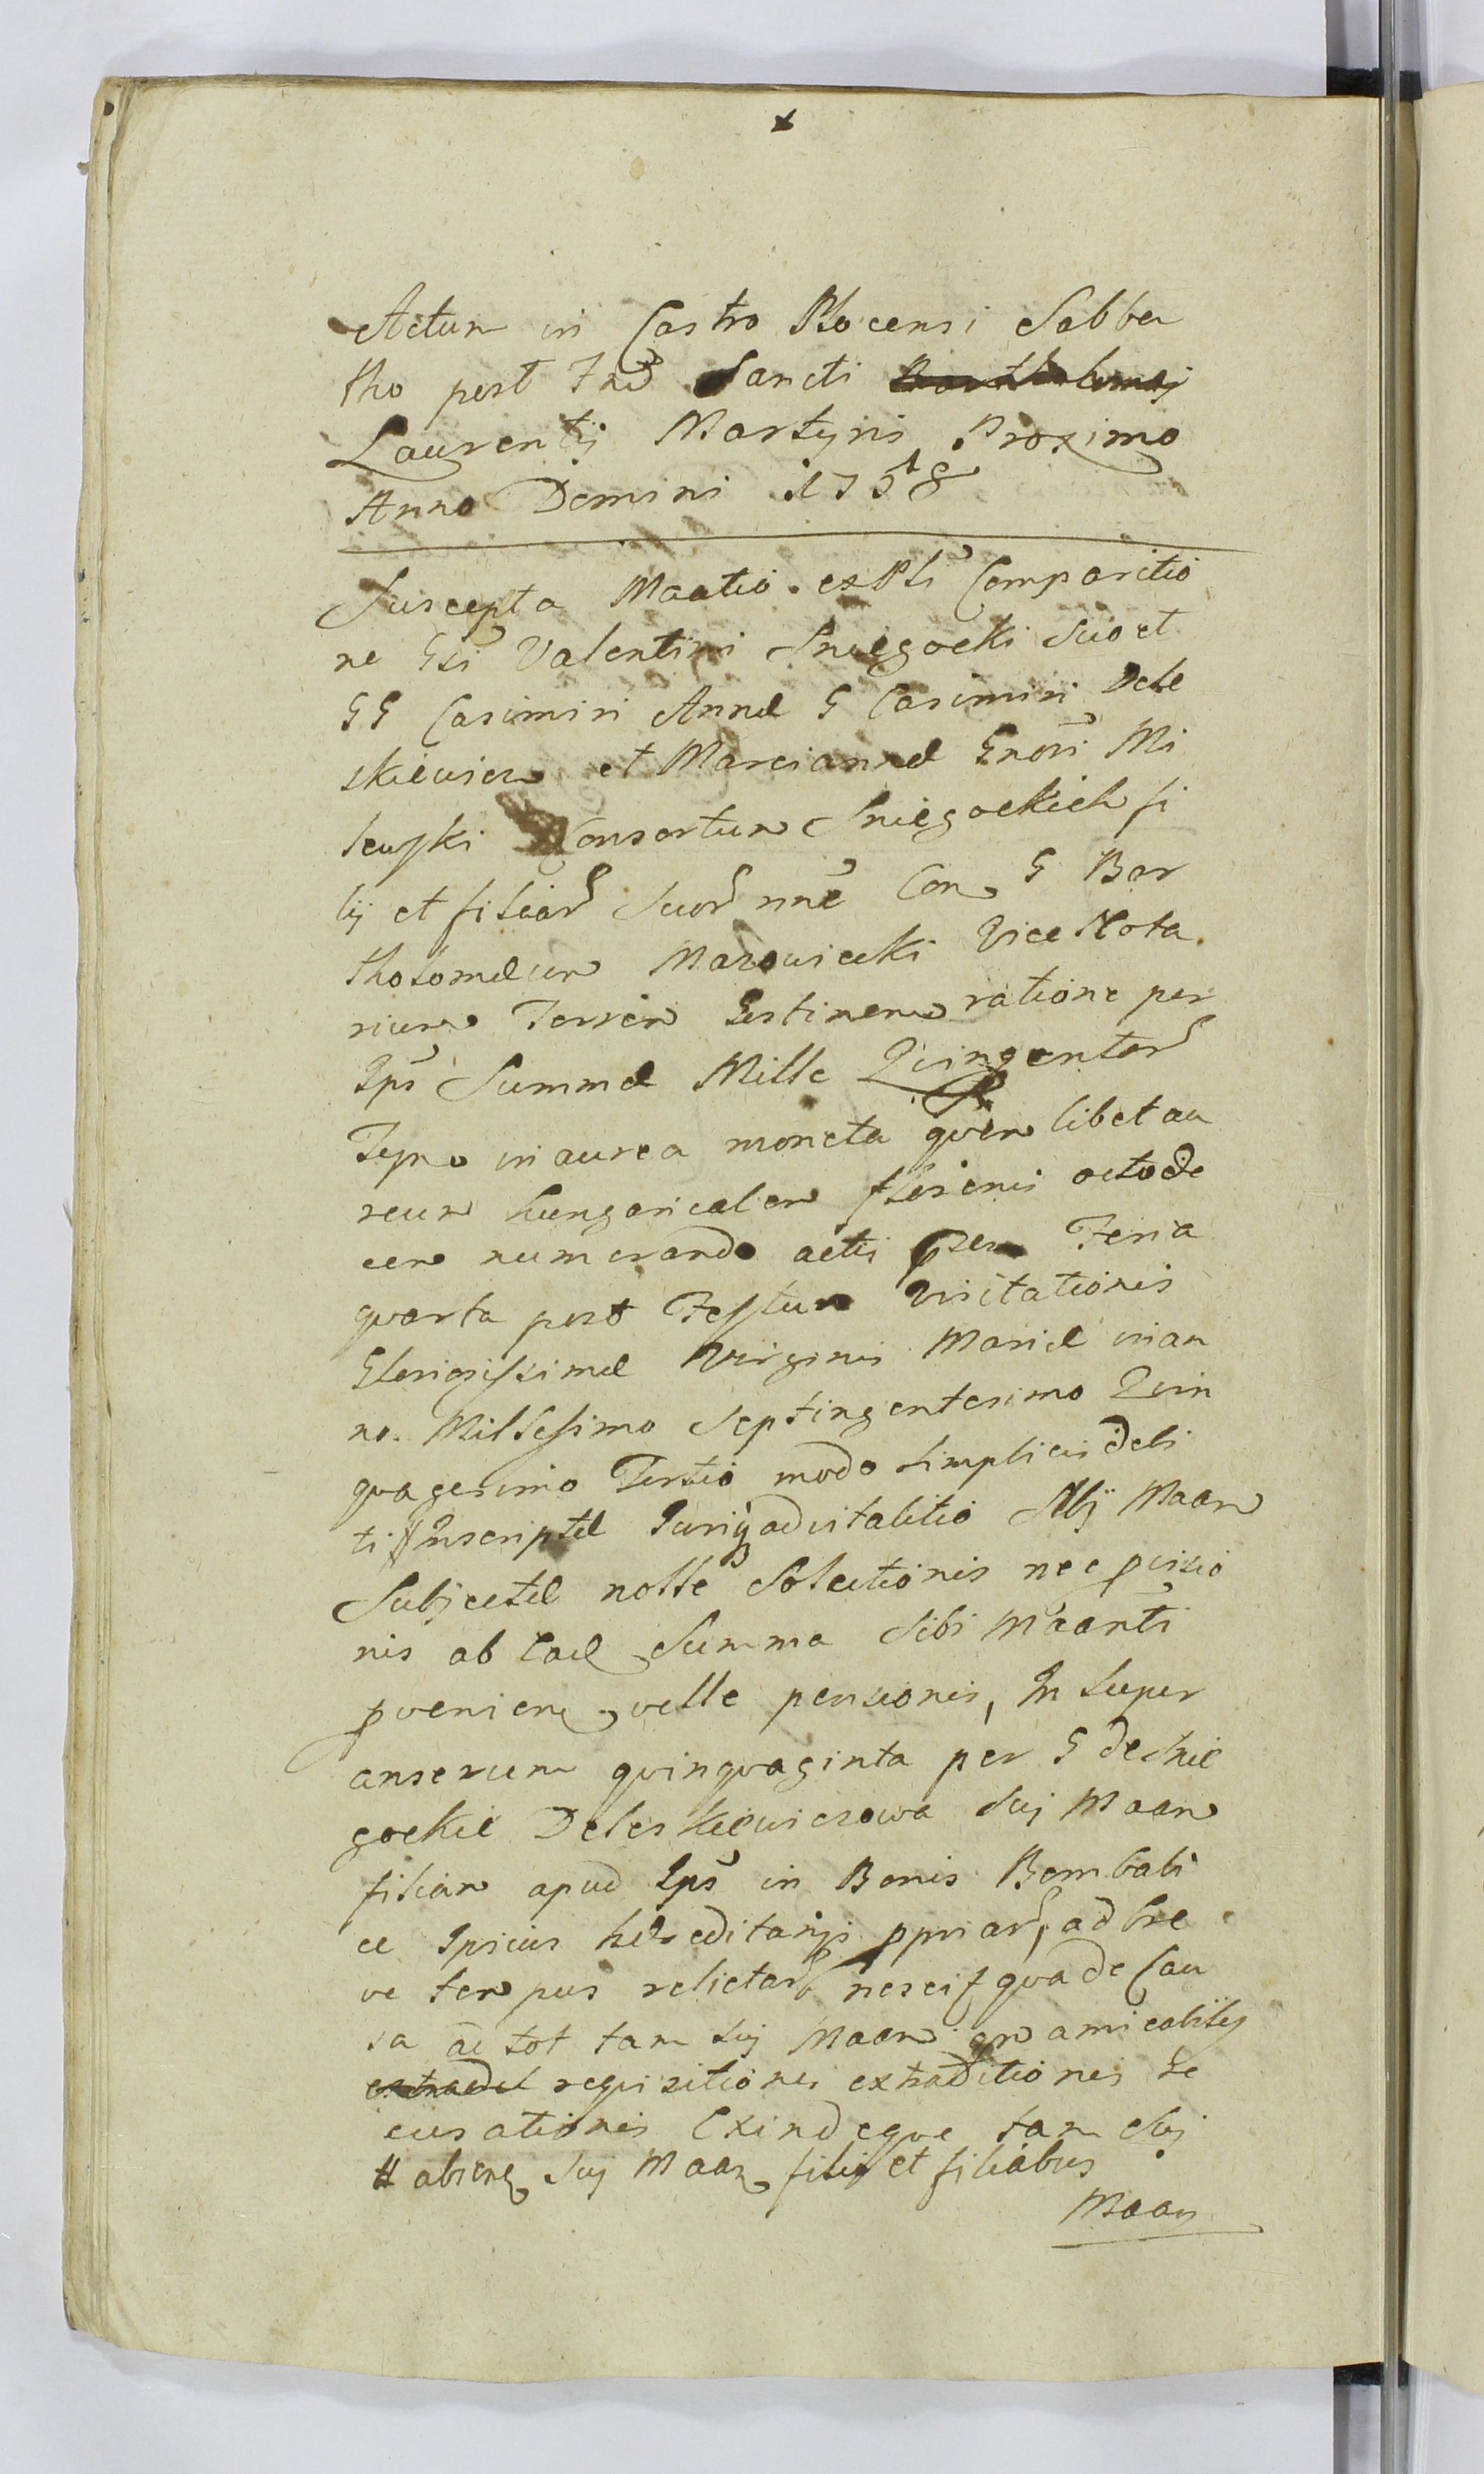 Actum in Castro Plocensi Sabba
tho post Fnd Sancti Bartholomaj
Laurentij Martyris Proximo
Anno Domini 1758
Suscepta Maatio. ex Pli Comparitio
ne Gsi Valentini Sniegocki suo et
GG Casimiri Annæ G Casimiri Dele
skiewicz et Marciannæ Gnosi Mi
lewski Consortum Sniegockich fi
lij et filiar suor nne Con G Bar
tholomæum Mazowiecki Vice Nota
rium Terren ratione per
Ips Summæ Mille Quingentor
Tynf in aurea moneta quem libet au
reum hungaricalem florenis octode
cem numerando actis Feria
quarta post Festum Visitationis
Gloriosissimæ Virginis Mariæ in an
no. Millesimo Septingentesimo Quin
quagesimo Tertio modo simplicis debi
ti Inscriptæ Jurique advitalitio Maan
Subjectæ nolle Solutionis nec pvisio
nis ab Ead Summa Sibi Maanti
pvenien velle pensionis, In super
anserum quinquaginta per G de Snie
gockie Deleskiewiczowa Suj Maan
filiam apud Ips in Bonis Bombali
ce Ipsius hæreditarijs ppriar, ad bre
ve tempus relictar nescit qua de Cau
sa ac tot tam Suj Maan amicabiliter
extradit requisitiones extraditionis re
cusationis Exindeque tam Suj
# absenq Suj Maan filijs et filiabus
Maan